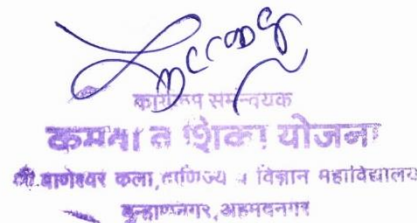 कार्यक्रम समन्वयक
कमवा व शिका योजना
श्री बाणेश्वर कला, वाणिज्य व विज्ञान महाविद्यालय
बुऱ्हाणनगर, अहमदनगर